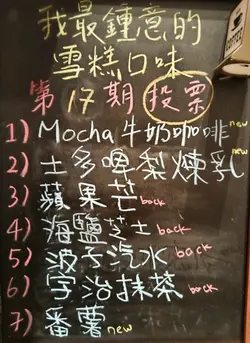 我最鍾意的
雪糕口味
第17期投票
1) Mocha牛奶咖啡new
2) 士多啤梨煉乳new
3) 蘋果芒back
4) 海鹽芝士back
5) 波子汽水back
6) 宇治抹茶back
7) 番薯new